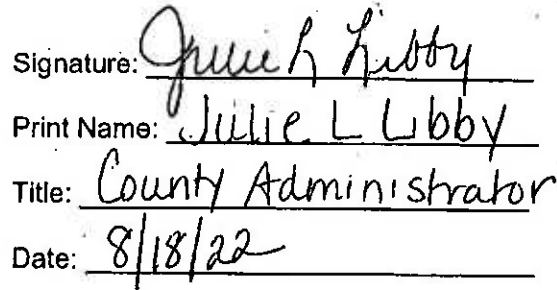 Signature: Julie L Libby
Print Name: Julie L Libby
Title: County Administrator
Date: 8/18/22